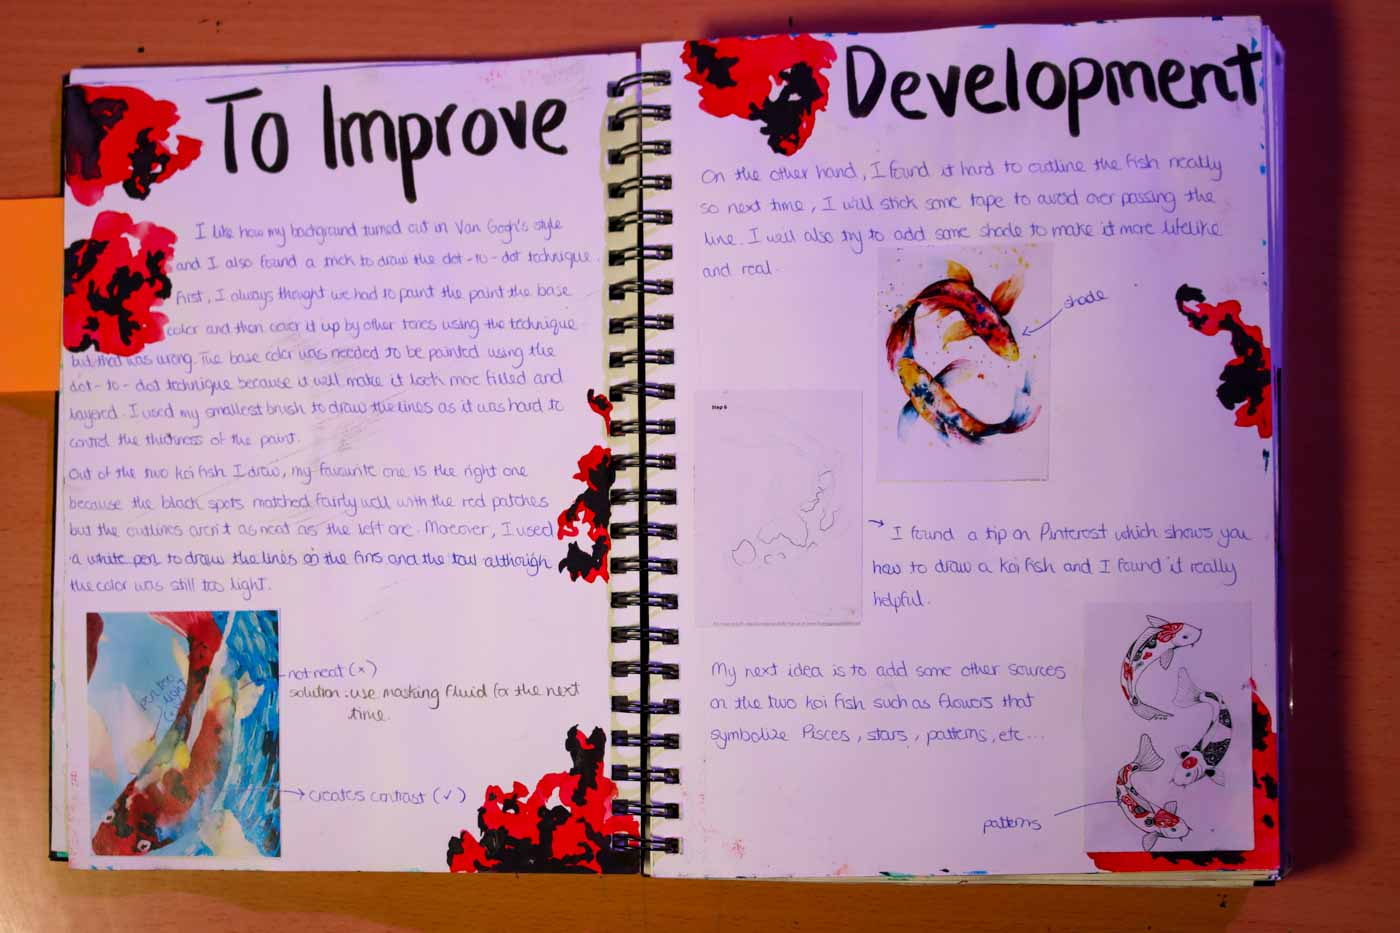 To Improve
I like how my background turned out in Van Gogh's style
and I also found a trick to draw the dot-to-dot technique.
First, I always thought we had to paint the paint the base
color and then cover it up by other tones using the technique
but that was wrong. The base color was needed to be painted using the
dot-to-dot technique because it will make it look more filled and
layered. I used my smallest brush to draw the lines as it was hard to
control the thickness of the paint.
Out of the two koi fish I draw, my favourite one is the right one
because the black spots matched fairly well with the red patches
but the outlines aren't as neat as the left one. Moreover, I used
a white pen to draw the lines on the fins and the tail although
the color was still too light.
not neat (x)
solution: use masking fluid for the next
time.
creates contrast (✓)
Development
On the other hand, I found it hard to outline the fish neatly
so next time, I will stick some tape to avoid over passing the
line. I will also try to add some shade to make it more lifelike
and real.
shade
Step 6
I found a tip on Pinterest which shows you
how to draw a koi fish and I found it really
helpful.
My next idea is to add some other sources
on the two koi fish such as flowers that
symbolize Pisces, stars, patterns, etc...
patterns